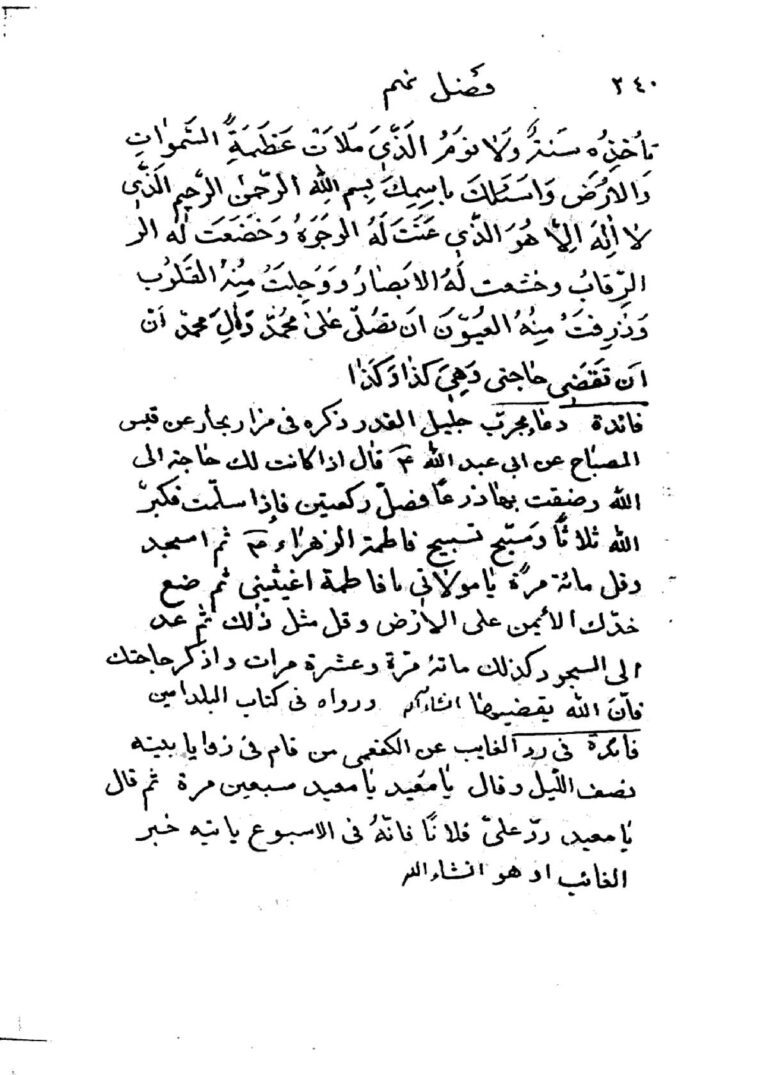 ٢٤٠ فصل نهم
تأخذه سنة ولا نوم الذي ملات عظمة السموات
والارض واسئلك باسمك بسم الله الرحمن الرحيم الذي
لا اله الا هو الذي عنت له الوجوه وخضعت له الر
الرقاب وخشعت له الابصار ووجلت منه القلوب
وذرفت منه العيون ان تصلي على محمد وال محمد ان
ان تقضي حاجتي وهي كذا وكذا
فائدة دعاء مجرب جليل القدر ذكره في مزار بحار عن قبس
المصباح عن ابي عبد الله ع قال اذا كانت لك حاجة الى
الله وضقت بها ذرعا فصل ركعتين فإذا سلمت فكبر
الله ثلاثا وسبح تسبيح فاطمة الزهراء ع ثم اسجد
وقل مائة مرة يا مولاتي يا فاطمة اغيثيني ثم ضع
خدك الأيمن على الارض وقل مثل ذلك ثم عد
الى السجود كذلك مائة مرة وعشرة مرات واذكر حاجتك
فان الله يقضيها انشاء الله ورواه في كتاب البلد امين
فائدة في رد الغايب عن الكفعمي من قام في زوايا بيته
نصف الليل وقال يا معيد يا معيد سبعين مرة ثم قال
يا معيد رد علي فلانا فانه في الاسبوع ياتيه خبر
الغائب او هو انشاء الله